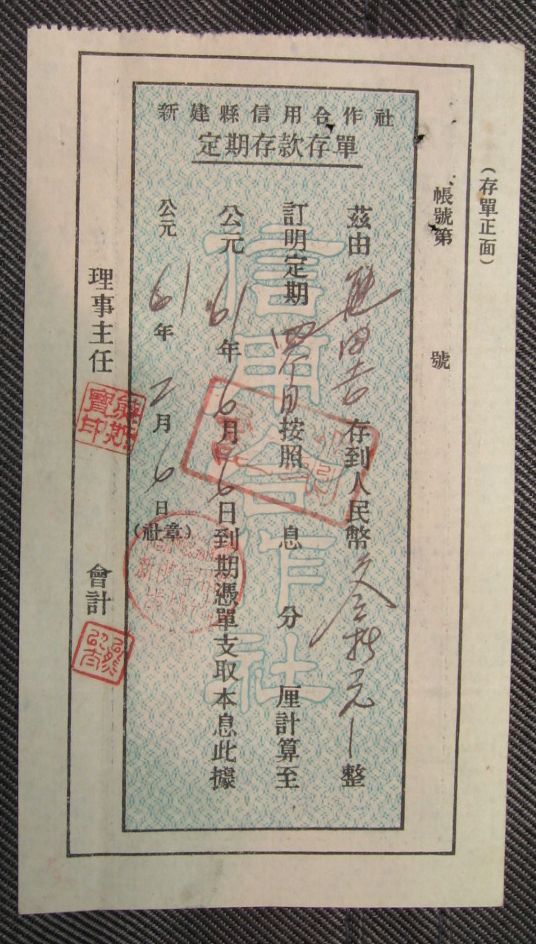 (存單正面)
帳號第 號
新建縣信用合作社
定期存款存單
茲由 田 存到人民幣 拾元整
訂明定期四個月按照 息 分 厘計算至
公元61年6月6日到期憑單支取本息此據
公元61年2月6日
(社章)
理事主任
會計
信用合作社